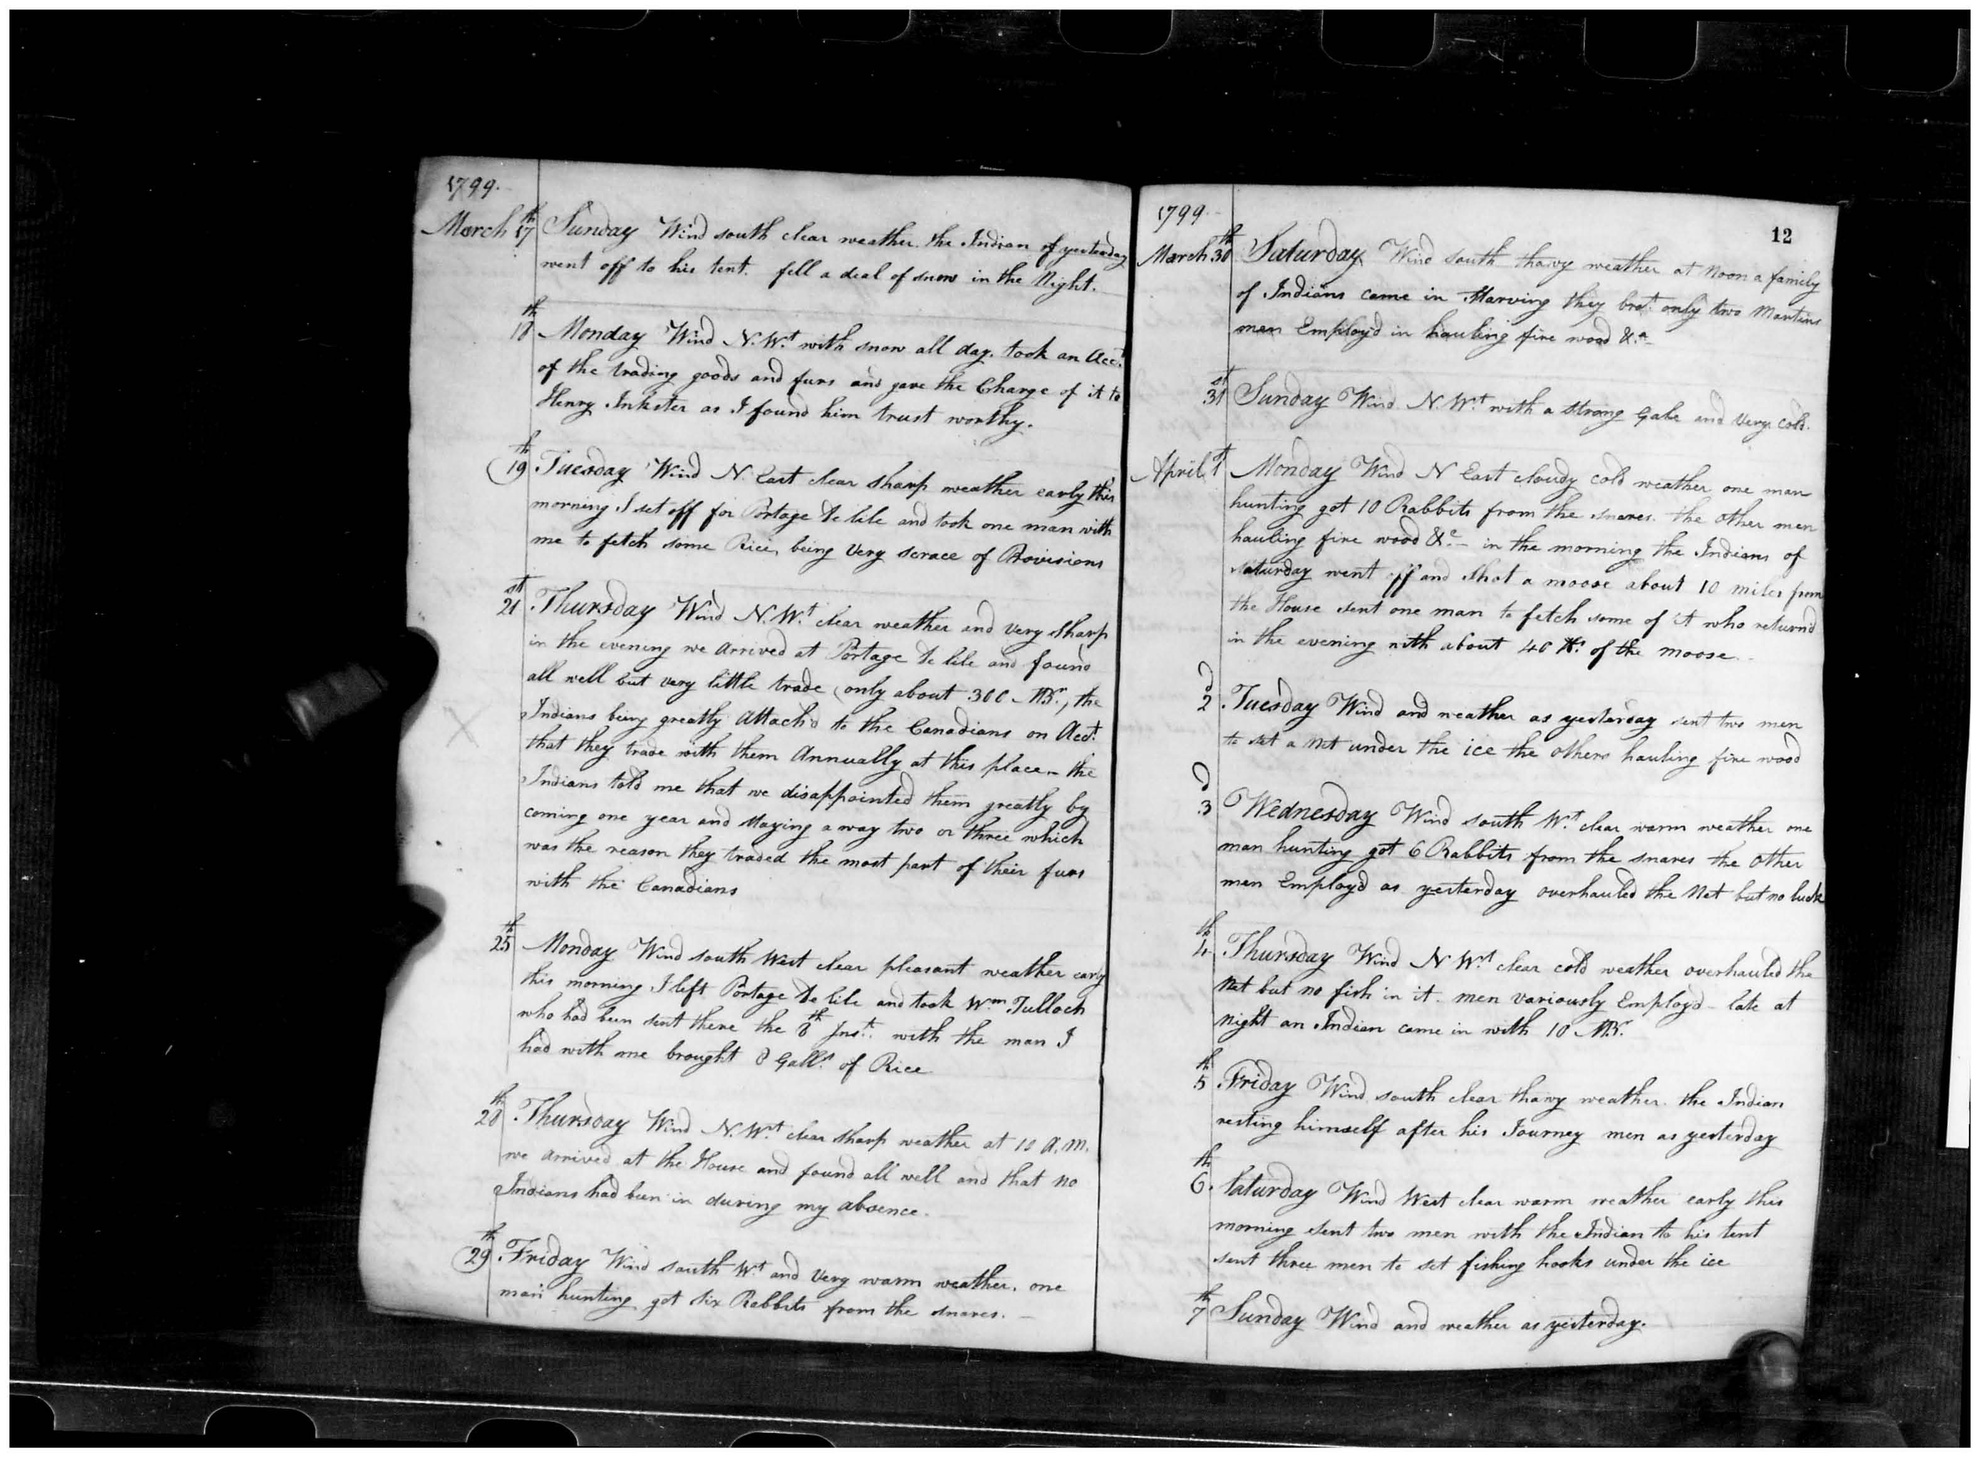 1799.
March 17th Sunday Wind south clear weather. the Indian of yesterday
went off to his tent. fell a deal of snow in the Night.
18th Monday Wind N.Wt with snow all day. took an Acct
of the trading goods and furs and gave the Charge of it to
Henry Inkster as I found him trust worthy.
19th Tuesday Wind N. East clear sharp weather early this
morning I set off for Portage De lile and took one man with
me to fetch some Rice, being Very scrace of Provisions
21st Thursday Wind N.Wt clear weather and very sharp
in the evening we arrived at Portage De lile and found
all well but very little trade (only about 300 MBr, the
Indians being greatly Attach'd to the Canadians on Acct
that they trade with them Annually at this place - the
Indians told me that we disappointed them greatly by
coming one year and staying away two or three which
was the reason they traded the most part of their furs
with the Canadians
25th Monday Wind south West clear pleasant weather early
this morning I left Portage De lile and took Wm Tulloch
who had been sent there the 8th Inst. with the man I
had with me brought 8 Galls. of Rice
28th Thursday Wind N.Wt clear sharp weather at 10 A.M.
we arrived at the House and found all well and that no
Indians had been in during my absence.
29th Friday Wind south Wt and Very warm weather. one
man hunting got six Rabbits from the snares. -
1799
12
March 30th Saturday Wind south thawy weather at Noon a family
of Indians came in Starving they brot only two Martins
men Employd in hauling fire wood &a -
31st Sunday Wind N.Wt with a strong Gale and Very Cold.
April 1st Monday Wind N East cloudy cold weather one man
hunting got 10 Rabbits from the snares. the other men
hauling fire wood &c - in the morning the Indians of
saturday went off and shot a moose about 10 miles from
the House sent one man to fetch some of it who return'd
in the evening with about 40 lbs. of the moose -
2d Tuesday Wind and weather as yesterday sent two men
to set a Net under the ice the others hauling fire wood
3d Wednesday Wind south Wt clear warm weather one
man hunting got 6 Rabbits from the snares the other
men Employd as yesterday overhauled the Net but no luck
4th Thursday Wind N Wt clear cold weather overhauled the
Net but no fish in it. men variously Employd - late at
Night an Indian came in with 10 MBr.
5th Friday Wind south clear thawy weather. the Indian
resting himself after his Journey men as yesterday
6th Saturday Wind West clear warm weather early this
morning sent two men with the Indian to his tent
sent three men to set fishing hooks under the ice
7th Sunday Wind and weather as yesterday.